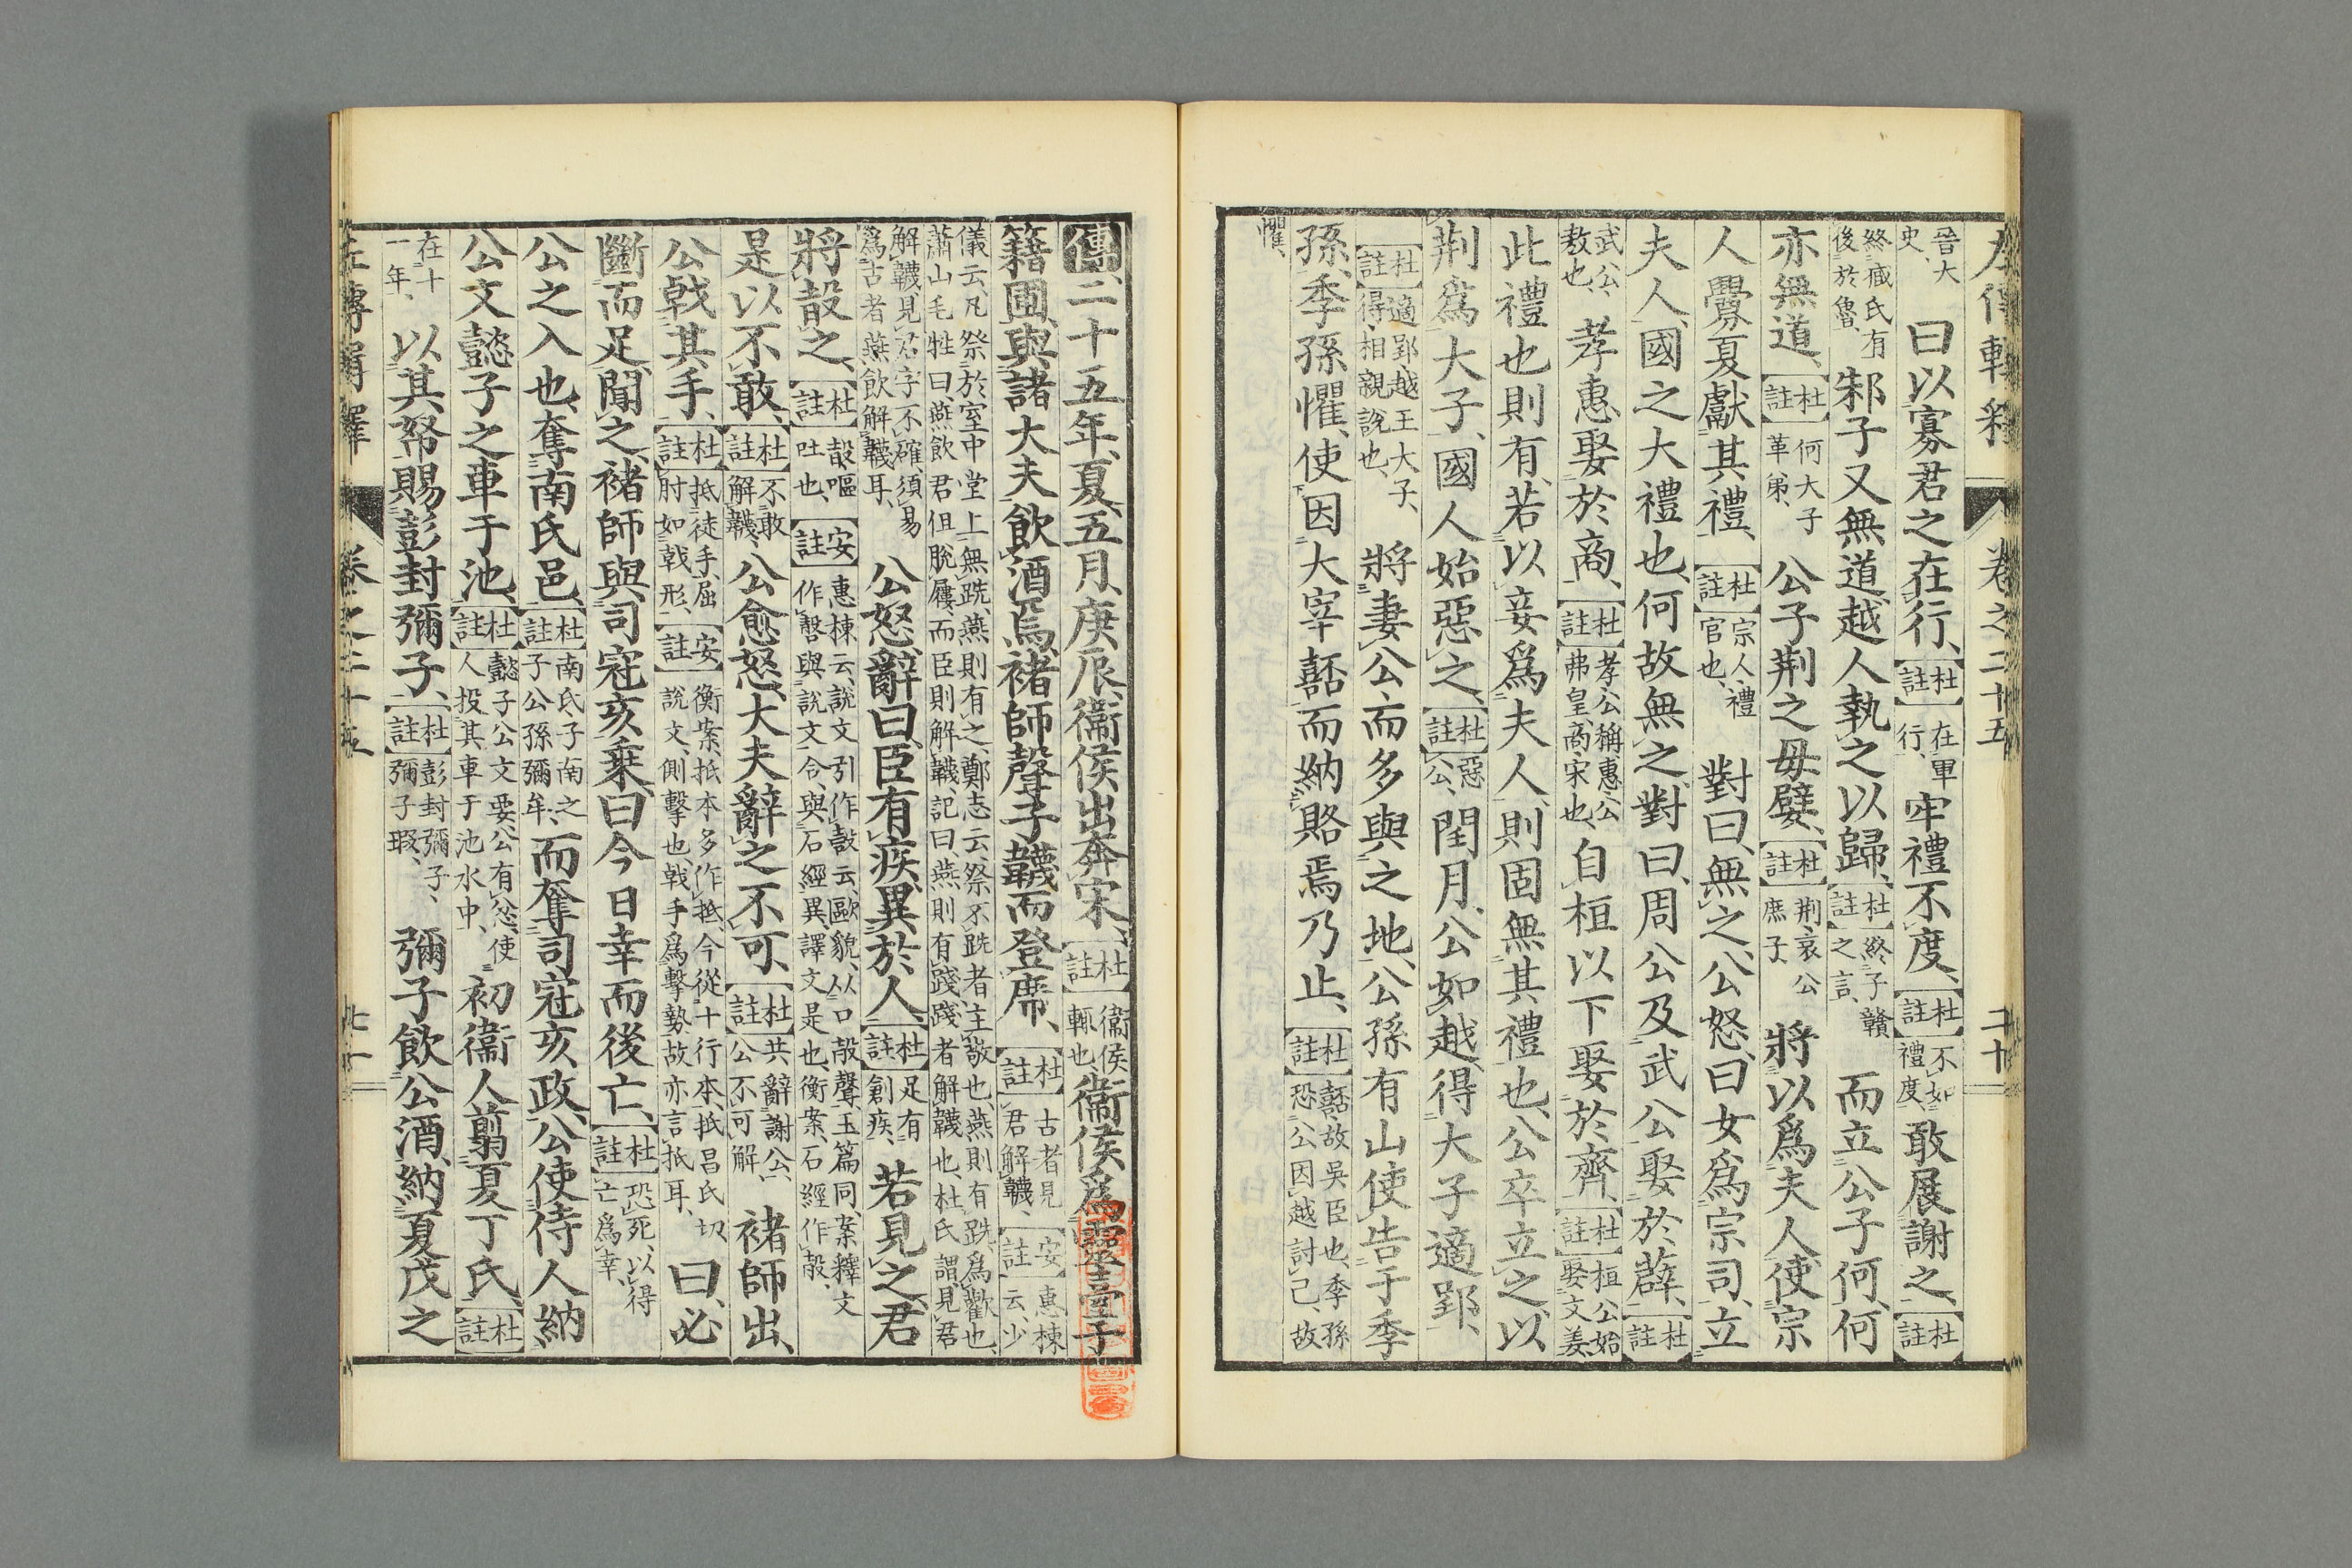 左傳輯釋 卷之二十五 二十
晉大史、曰以寡君之在行、【杜註】在軍行、牢禮不度、【杜註】不如禮度、敢展謝之、【杜註】
終臧氏有後於魯、邾子又無道、越人執之以歸、【杜註】終子贛之言、而立公子何、何
亦無道、【杜註】何大子革弟、公子荆之母嬖、【杜註】荆、哀公庶子、將以爲夫人、使宗
人釁夏獻其禮、【杜註】宗人、禮官也、對曰、無之、公怒曰、女爲宗司、立
夫人、國之大禮也、何故無之、對曰、周公及武公娶於薛、【杜註】
武公、敖也、孝惠娶於商、【杜註】孝公稱、惠公弗皇、商、宋也、自桓以下娶於齊、【杜註】桓公始娶文姜、
此禮也則有、若以妾爲夫人、則固無其禮也、公卒立之、以
荆爲大子、國人始惡之、【杜註】惡公、閏月、公如越、得大子適郢、
【杜註】適郢、越王大子、得、相親說也、將妻公、而多與之地、公孫有山使告于季
孫、季孫懼、使因大宰嚭而納賂焉、乃止、【杜註】嚭、故吳臣也、季孫恐公因越討己、故
懼、
傳、二十五年、夏、五月、庚辰、衞侯出奔宋、【杜註】衞侯輒也、衞侯爲靈臺于
籍圃、與諸大夫飲酒焉、褚師聲子韤而登席、【杜註】古者見君解韤、【安註】惠棟云、少
儀云、凡祭於室中堂上無跣、燕則有之、鄭志云、祭不跣者主敬也、燕則有跣、爲歡也、蕭山毛甡曰、燕飲君但脫屨、而臣則解韤、記曰、燕則有踐、踐者解韤也、杜氏謂見君
解韤、見君字不確、須易爲古者燕飲解韤耳、公怒、辭曰、臣有疾、異於人、【杜註】足有創疾、若見之、君
將㱿之、【杜註】㱿、嘔吐也、【安註】惠棟云、說文引作㱿、云、歐貌、从口㱿聲、玉篇同、案釋文作㱿、與說文合、與石經異、譯文是也、衡案、石經作㱿、
是以不敢、【杜註】不敢解韤、公愈怒、大夫辭之、不可、【杜註】共辭謝公、公不可解、褚師出、
公戟其手、【杜註】抵徒手、屈肘如戟形、【安註】衡案、抵本多作扺、今從十行本、抵昌氏切、說文、側擊也、戟手爲擊勢、故亦言抵耳、曰、必
斷而足、聞之、褚師與司寇亥乘、曰、今日幸而後亡、【杜註】恐死、以得亡爲幸、
公之入也、奪南氏邑、【杜註】南氏、子南之子公孫彌牟、而奪司寇亥政、公使侍人納
公文懿子之車于池、【杜註】懿子、公文要、公有忿、使人投其車于池水中、初、衞人翦夏丁氏、【杜註】
在十一年、以其帑賜彭封彌子、【杜註】彭封彌子、彌子瑕、彌子飲公酒、納夏戊之
左傳輯釋 卷之二十五